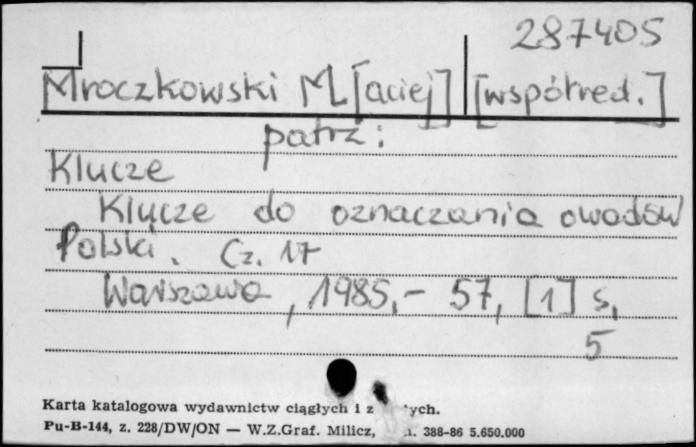 287405
Mroczkowski M[aciej] [współred.]
patrz:
Klucze
Klucze do oznaczania owadów
Polski. Cz. 17
Warszawa, 1985,- 57, [1] s.
5
Karta katalogowa wydawnictw ciągłych i z
Pu-B-144, z. 228/DW/ON — W.Z.Graf. Milicz, 388-86 5.650.000